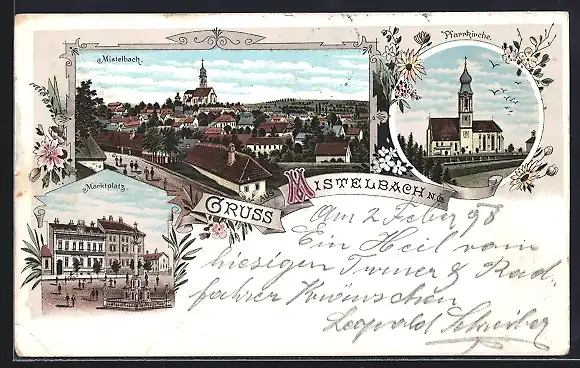 Mistelbach.
Pfarrkirche.
Marktplatz.
GRUSS
MISTELBACH N.Ö.
Am 2 Feber 98
Ein Heil vom
hiesigen Turner & Rad-
fahrer Kränzchen
Leopold Schreiber